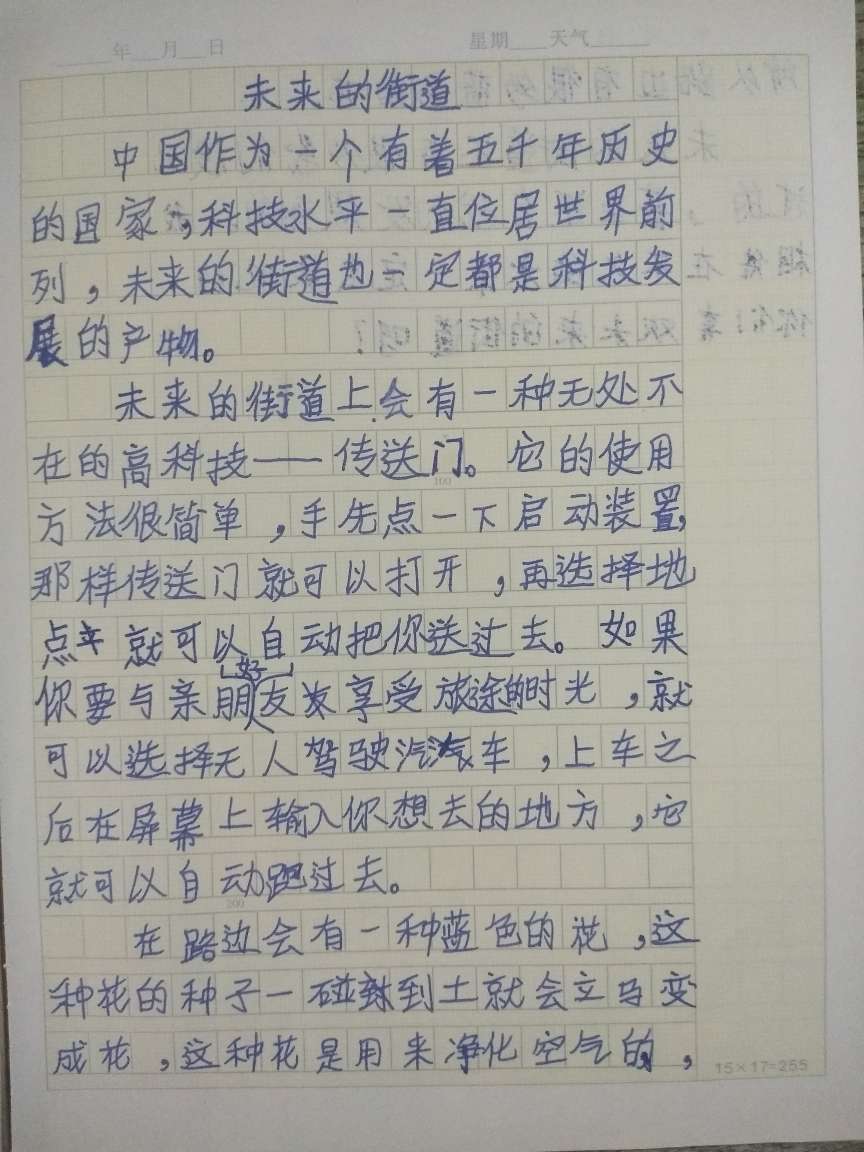 年 月 日 星期 天气
未来的街道
中国作为一个有着五千年历史
的国家,科技水平一直位居世界前
列,未来的街道也一定都是科技发
展的产物。
未来的街道上会有一种无处不
在的高科技——传送门。它的使用
100
方法很简单,手先点一下启动装置,
那样传送门就可以打开,再选择地
点 就可以自动把你送过去。如果
好
你要与亲朋友 享受旅途的时光,就
可以选择无人驾驶汽 车,上车之
后在屏幕上输入你想去的地方,它
就可以自动跑过去。
200
在路边会有一种蓝色的花,这
种花的种子一碰到土就会立马变
成花,这种花是用来净化空气的,
15×17=255